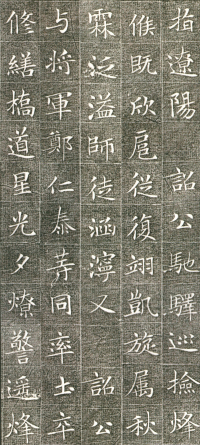 指遼陽 詔公馳驛巡撿烽
候既欣扈從復翊凱旋属秋
霖泛溢師徒涵濘又 詔公
与将軍鄭仁泰等同率士卒
修繕橋道星光夕燎警遥烽